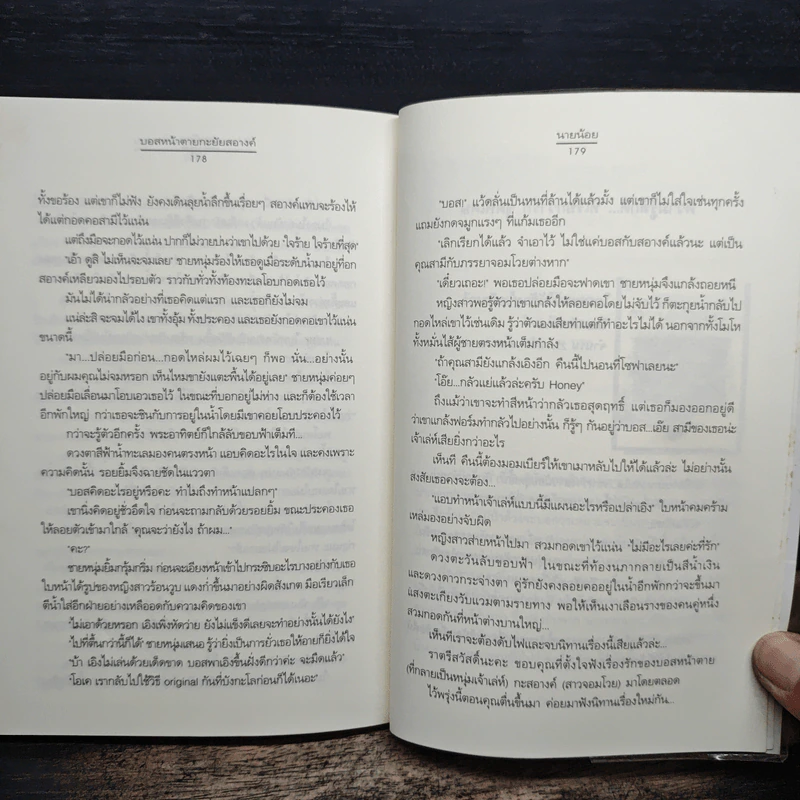 บอสหน้าตายกะยัยสอางค์
178
ทั้งขอร้อง แต่เขาก็ไม่ฟัง ยังคงเดินลุยน้ำลึกขึ้นเรื่อยๆ สอางค์แทบจะร้องไห้
ได้แต่กอดคอสามีไว้แน่น
แต่ถึงมือจะกอดไว้แน่น ปากก็ไม่วายบ่นว่าเขาไปด้วย 'ใจร้าย ใจร้ายที่สุด'
'เอ้า ดูสิ ไม่เห็นจะจมเลย' ชายหนุ่มร้องให้เธอดูเมื่อระดับน้ำมาอยู่ที่อก
สอางค์เหลียวมองไปรอบตัว ราวกับทั่วทั้งท้องทะเลโอบกอดเธอไว้
มันไม่ได้น่ากลัวอย่างที่เธอคิดแต่แรก และเธอก็ยังไม่จม
แน่ล่ะสิ จะจมได้ไง เขาทั้งอุ้ม ทั้งประคอง และเธอยังกอดคอเขาไว้แน่น
ขนาดนี้
"มา...ปล่อยมือก่อน...กอดไหล่ผมไว้เฉยๆ ก็พอ นั่น...อย่างนั้น
อยู่กับผมคุณไม่จมหรอก เห็นไหมขายังแตะพื้นได้อยู่เลย" ชายหนุ่มค่อยๆ
ปล่อยมือเลื่อนมาโอบเอวเธอไว้ ในขณะที่บอกไม่ห่าง และก็ต้องใช้เวลา
อีกพักใหญ่ กว่าเธอจะชินกับการอยู่ในน้ำโดยมีเขาคอยโอบประคองไว้
กว่าจะรู้ตัวอีกครั้ง พระอาทิตย์ก็ใกล้ลับขอบฟ้าเต็มที...
ดวงตาสีฟ้าน้ำทะเลมองคนตรงหน้า แอบคิดอะไรในใจ และคงเพราะ
ความคิดนั้น รอยยิ้มจึงฉายชัดในแววตา
"บอสคิดอะไรอยู่หรือคะ ทำไมถึงทำหน้าแปลกๆ"
เขานิ่งคิดอยู่ชั่วอึดใจ ก่อนจะถามกลับด้วยรอยยิ้ม ขณะประคองเธอ
ให้ลอยตัวเข้ามาใกล้ "คุณจะว่ายังไง ถ้าผม..."
"คะ?"
ชายหนุ่มยิ้มกรุ้มกริ่ม ก่อนจะเอียงหน้าเข้าไปกระซิบอะไรบางอย่างกับเธอ
ใบหน้าได้รูปของหญิงสาวร้อนวูบ แดงก่ำขึ้นมาอย่างผิดสังเกต มือเรียวเล็ก
ตีน้ำใส่อีกฝ่ายอย่างเหลืออดกับความคิดของเขา
'ไม่เอาด้วยหรอก เอิงเพิ่งหัดว่าย ยังไม่แข็งดีเลยจะทำอย่างนั้นได้ยังไง'
'ไปที่ตื้นกว่านี้ก็ได้' ชายหนุ่มเสนอ รู้ว่ายิ่งเป็นการยั่วเธอให้อายก็ยิ่งได้ใจ
"บ้า เอิงไม่เล่นด้วยเด็ดขาด บอสพาเอิงขึ้นฝั่งดีกว่าค่ะ จะมืดแล้ว"
"โอเค เรากลับไปใช้วิธี original กันที่บังกะโลก่อนก็ได้เนอะ"
นายน้อย
179
"บอส!" แว้ดลั่นเป็นหนที่ล้านได้แล้วมั้ง แต่เขาก็ไม่ใส่ใจเช่นทุกครั้ง
แถมยังกดจมูกแรงๆ ที่แก้มเธออีก
"เลิกเรียกได้แล้ว จำเอาไว้ ไม่ใช่แค่บอสกับสอางค์แล้วนะ แต่เป็น
คุณสามีกับภรรยาจอมโวยต่างหาก"
"เดี๋ยวเถอะ!" พอเธอปล่อยมือจะฟาดเขา ชายหนุ่มจึงแกล้งถอยหนี
หญิงสาวพอรู้ตัวว่าเขาแกล้งให้ลอยคอโดยไม่จับไว้ ก็ตะกุยน้ำกลับไป
กอดไหล่เขาไว้เช่นเดิม รู้ว่าตัวเองเสียท่าแต่ก็ทำอะไรไม่ได้ นอกจากทั้งโมโห
ทั้งหมั่นไส้ผู้ชายตรงหน้าเต็มกำลัง
"ถ้าคุณสามียังแกล้งเอิงอีก คืนนี้ไปนอนที่โซฟาเลยนะ"
"โอ๊ย...กลัวแย่แล้วล่ะครับ Honey"
ถึงแม้ว่าเขาจะทำสีหน้าว่ากลัวเธอสุดฤทธิ์ แต่เธอก็มองออกอยู่ดี
ว่าเขาแกล้งฟอร์มทำกลัวไปอย่างนั้น ก็รู้ๆ กันอยู่ว่าบอส...เอ๊ย สามีของเธอน่ะ
เจ้าเล่ห์เสียยิ่งกว่าอะไร
เห็นที คืนนี้ต้องมอมเบียร์ให้เขาเมาหลับไปให้ได้แล้วล่ะ ไม่อย่างนั้น
สงสัยเธอคงจะต้อง...
"แอบทำหน้าเจ้าเล่ห์แบบนี้มีแผนอะไรหรือเปล่าเอิง" ใบหน้าคมคร้าม
เหล่มองอย่างจับผิด
หญิงสาวส่ายหน้าไปมา สวมกอดเขาไว้แน่น "ไม่มีอะไรเลยค่ะที่รัก"
ดวงตะวันลับขอบฟ้า ในขณะที่ท้องนภากลายเป็นสีน้ำเงิน
และดวงดาวกระจ่างตา คู่รักยังคงลอยคออยู่ในน้ำอีกพักกว่าจะขึ้นมา
แสงตะเกียงวับแวมตามรายทาง พอให้เห็นเงาเลือนรางของคนคู่หนึ่ง
สวมกอดกันที่หน้าต่างบานใหญ่...
เห็นทีเราจะต้องดับไฟและจบนิทานเรื่องนี้เสียแล้วล่ะ...
ราตรีสวัสดิ์นะคะ ขอบคุณที่ตั้งใจฟังเรื่องรักของบอสหน้าตาย
(ที่กลายเป็นหนุ่มเจ้าเล่ห์) กะสอางค์ (สาวจอมโวย) มาโดยตลอด
ไว้พรุ่งนี้ตอนคุณตื่นขึ้นมา ค่อยมาฟังนิทานเรื่องใหม่กัน...